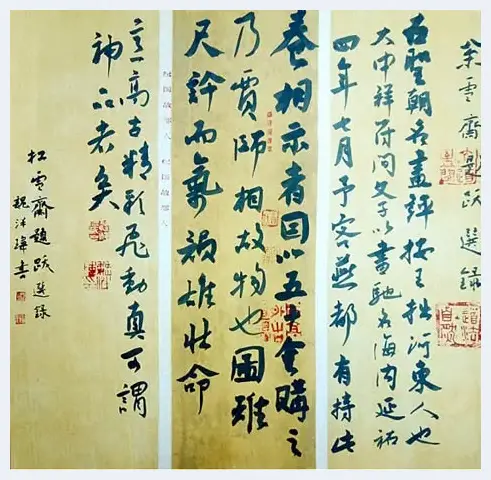 雪齋題跋選錄
右聖朝名畫評按王拙河東人也
大中祥符間父子以書馳名海內延祐
四年七月予客燕都有持此
卷相示者因以五十金購之
乃賈師相故物也圖雖
尺許而氣韻雄壯命
意高古精彩飛動真可謂
神品者矣
松雪齋題跋選錄